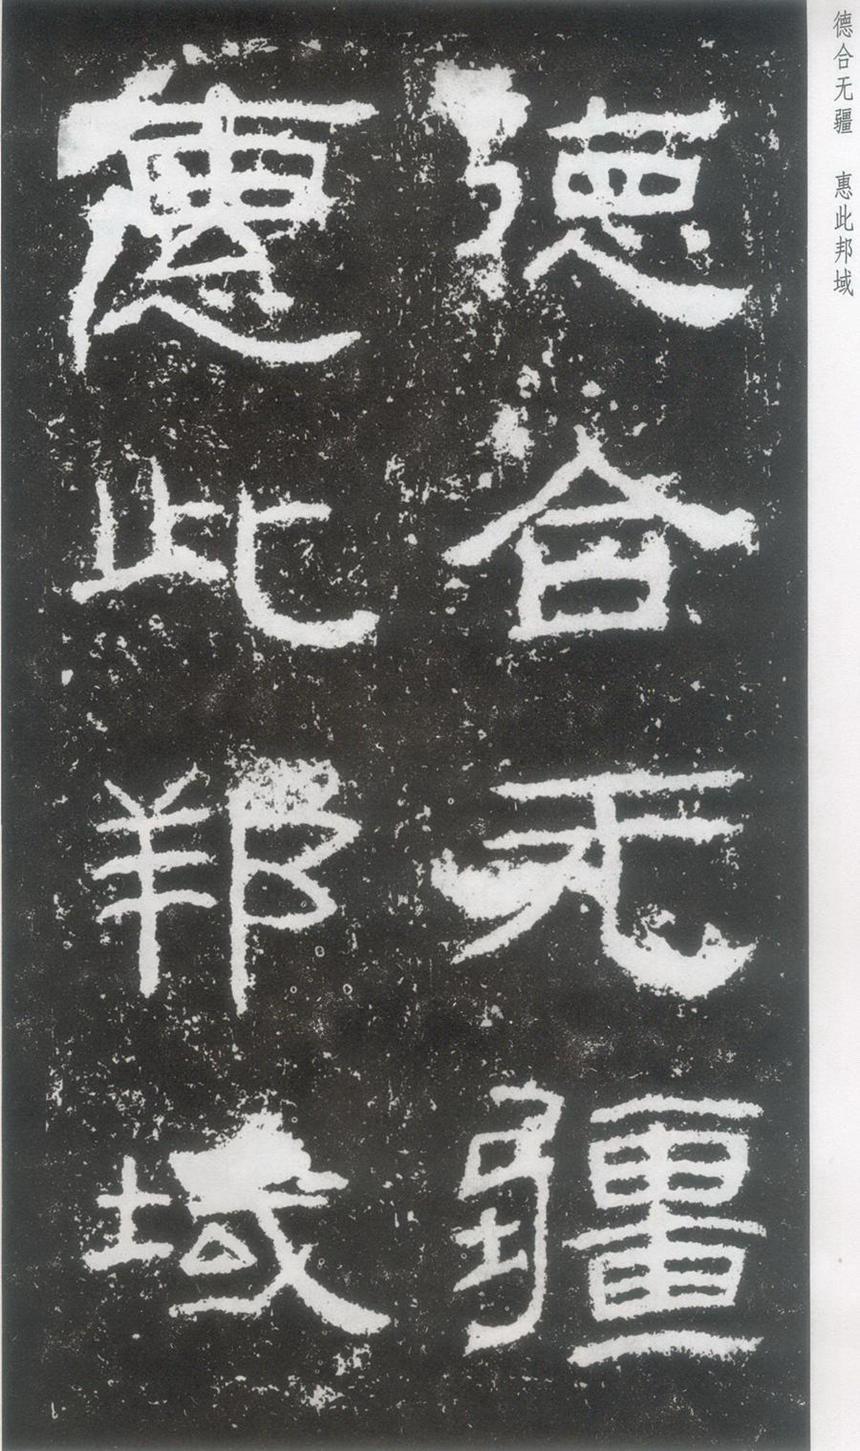 德合无疆 惠此邦域
德合无疆
惠此邦域